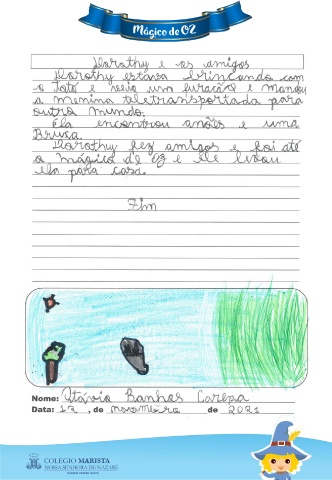 Mágico de OZ
Dorothy e os amigos
Dorothy estava brincando com
o Totó e veio um furacão e mandou
a menina teletransportada para
outro mundo.
Ela encontrou anões e uma
Bruxa.
Dorothy fez amigos e foi até
o mágico de Oz e ele levou
ela para casa.
Fim
Nome: Otávio Banhos Carepa
Data: 12, de novembro de 2021
COLÉGIO MARISTA
NOSSA SENHORA DE NAZARÉ